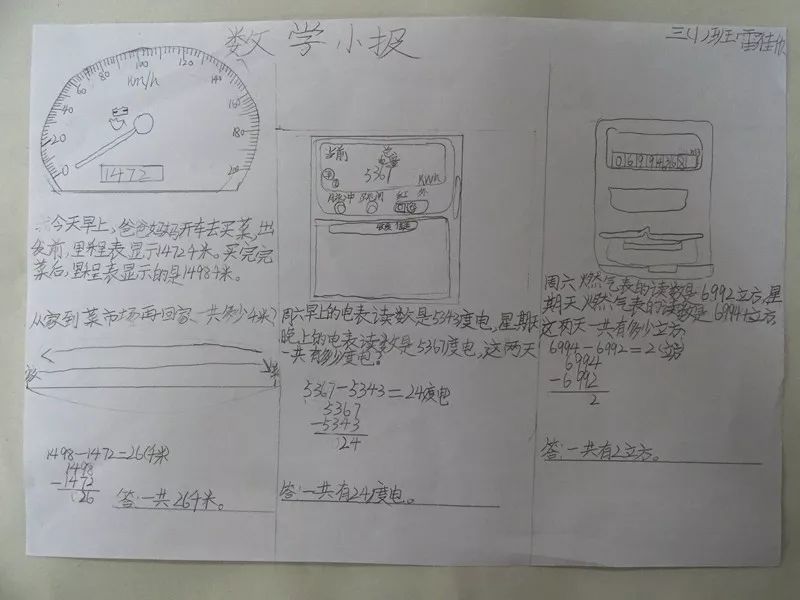 数学小报
三(1)班:雷雅
0 20 40 60 80 100 120 140 160 180 200
km/h
1472
今天早上,爸爸妈妈开车去买菜,出
发前,里程表显示1472千米。买完完
菜后,里程表显示的是1498千米。
从家到菜市场再回家一共多少千米?
家
1498-1472=26(千米)
1498
-1472
26
答:一共26千米。
当前
总
电量
5367
KWh
周六早上的电表读数是5343度电,星期天
晚上的电表读数是5367度电,这两天
一共有多少度电?
5367-5343=24度电
5367
-5343
24
答:一共有24度电。
周六燃气表的读数是6992立方,星
期天燃气表的读数是6994立方
这两天一共有多少立方
6994-6992=2立方
6994
-6992
2
答:一共有2立方。